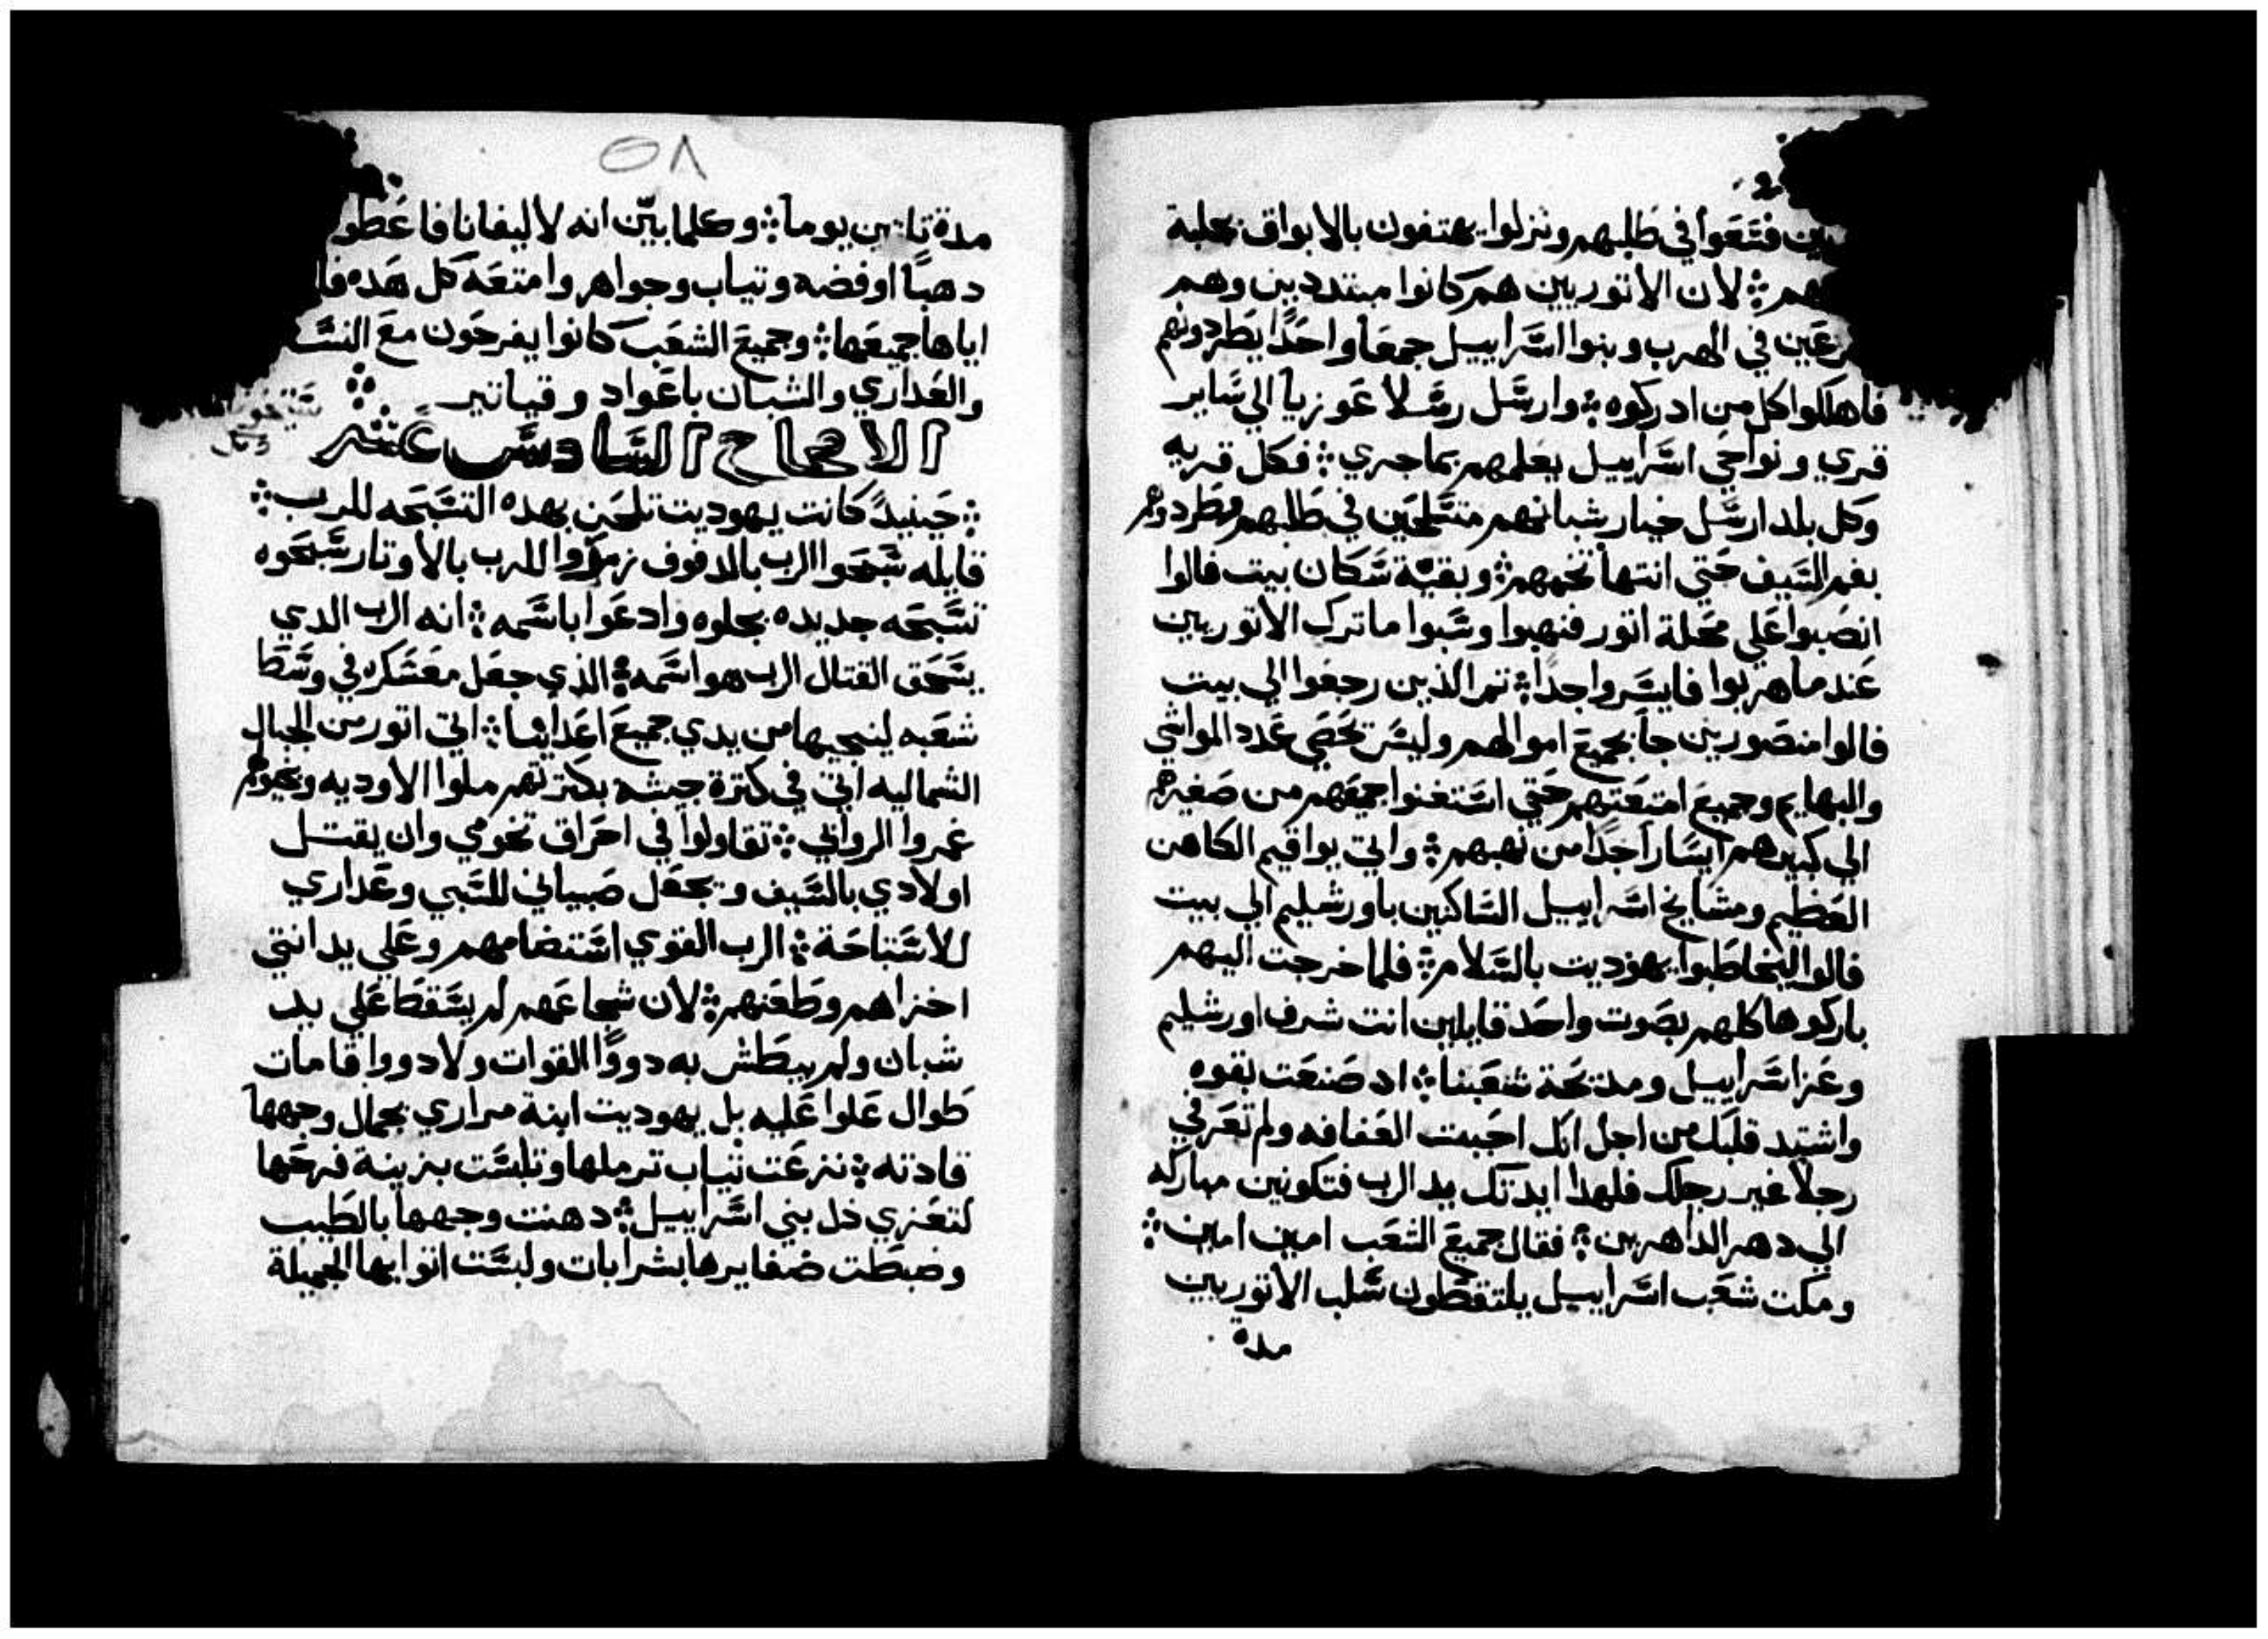 فتبعوا في طلبهم ونزلوا يهتفون بالابواق بجلبة
هم ؞ لان الاتوريين هم كانوا مبتددين وهم
في الهرب وبنوا اسراييل جمعا واحدًا يطردونهم
فاهلكوا كل من ادركوه ؞ وارسل رسلا عوزيا الي ساير
قري ونواحي اسراييل يعلمهم بما جري ؞ فكل قريه
وكل بلد ارسل خيار شبانهم متسلحين في طلبهم وطردوهم
بفم السيف حتي انتها تخمهم ؞ وبقية سكان بيت فالوا
انصبوا علي محلة اتور فنهبوا وسبوا ما ترك الاتوريين
عند ما هربوا فايسروا جدًا ؞ تم الذين رجعوا الي بيت
فالوا منصورين جا بجميع اموالهم وليس تحصي عدد المواشي
والبهايم وجميع امتعتهم حتي استغنوا جميعهم من صغيرهم
الي كبيرهم ايسارا جدًا من نهبهم ؞ واتي يواقيم الكاهن
العظيم ومشايخ اسراييل الساكنين باورشليم الي بيت
فالوا ليخاطبوا يهوديت بالسلام ؞ فلما خرجت اليهم
باركوها كلهم بصوت واحد قايلين انت شرف اورشليم
وعز اسراييل ومدتحة شعبنا ؞ اد صنعت بقوه
واشتد قلبك من اجل انك احببت العفافه ولم تعرفي
رجلا غير رجلك فلهذا ايدتك يد الرب فتكونين مباركه
الي دهر الداهرين ؞ فقال جميع الشعب امين امين ؞
ومكت شعب اسراييل يلتقطون سلب الاتوريين
مدة
٥٨
مدة يوما ؞ وكلما بيّن انه لاليفانا فاعطو
دهبًا او فضه وتياب وجواهر وامتعه كل هده
اياها جميعها ؞ وجميع الشعب كانوا يفرحون مع
والعداري والشبان باعواد وقياتير ؞
الاصحاح السادس عشر
؞ حينيدً كانت يهوديت تلحن بهده التسبحه للرب ؞
قايله سبحوا الرب بالدفوف زمروا للرب بالاوتار سبحوه
تسبحه جديده بجلوه وادعوا باسمه ؞ انه الرب الدي
يسحق القتال الرب هو اسمه ؞ الذي جعل معسكره في وسط
شعبه لينجيها من يدي جميع اعدايها ؞ اتي اتور من الجبال
الشماليه اتي في كترة جيشه بكترتهم ملوا الاوديه وخيولهم
غمروا الروابي ؞ تقاولوا في احراق تخومي وان يقتل
اولادي بالسيف ويجعل صبياني للسبي وعداري
للاستباحة ؞ الرب القوي استضامهم وعلي يد انتي
اخزاهم وطعنهم ؞ لان شجاعهم لم يسقط علي يد
شبان ولم يبطش به دووا القوات ولا دووا قامات
طوال علوا عليه بل يهوديت ابنة مراري بجمال وجهها
قادته ؞ نزعت تياب ترملها وتلبست بزينة فرحها
لتعزي ذل بني اسراييل ؞ دهنت وجهها بالطيب
وضبطت ضفايرها بشرابات ولبست اتوابها الجميلة